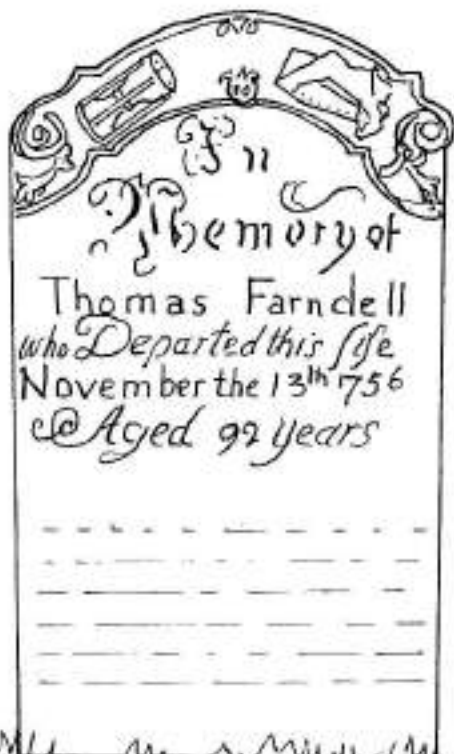 In
Memory of
Thomas Farndell
who Departed this life
November the 13th 756
Aged 92 years